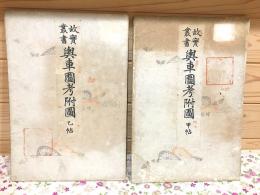 故實叢書 輿車圖考附圖 甲帖
故實叢書 輿車圖考附圖 乙帖